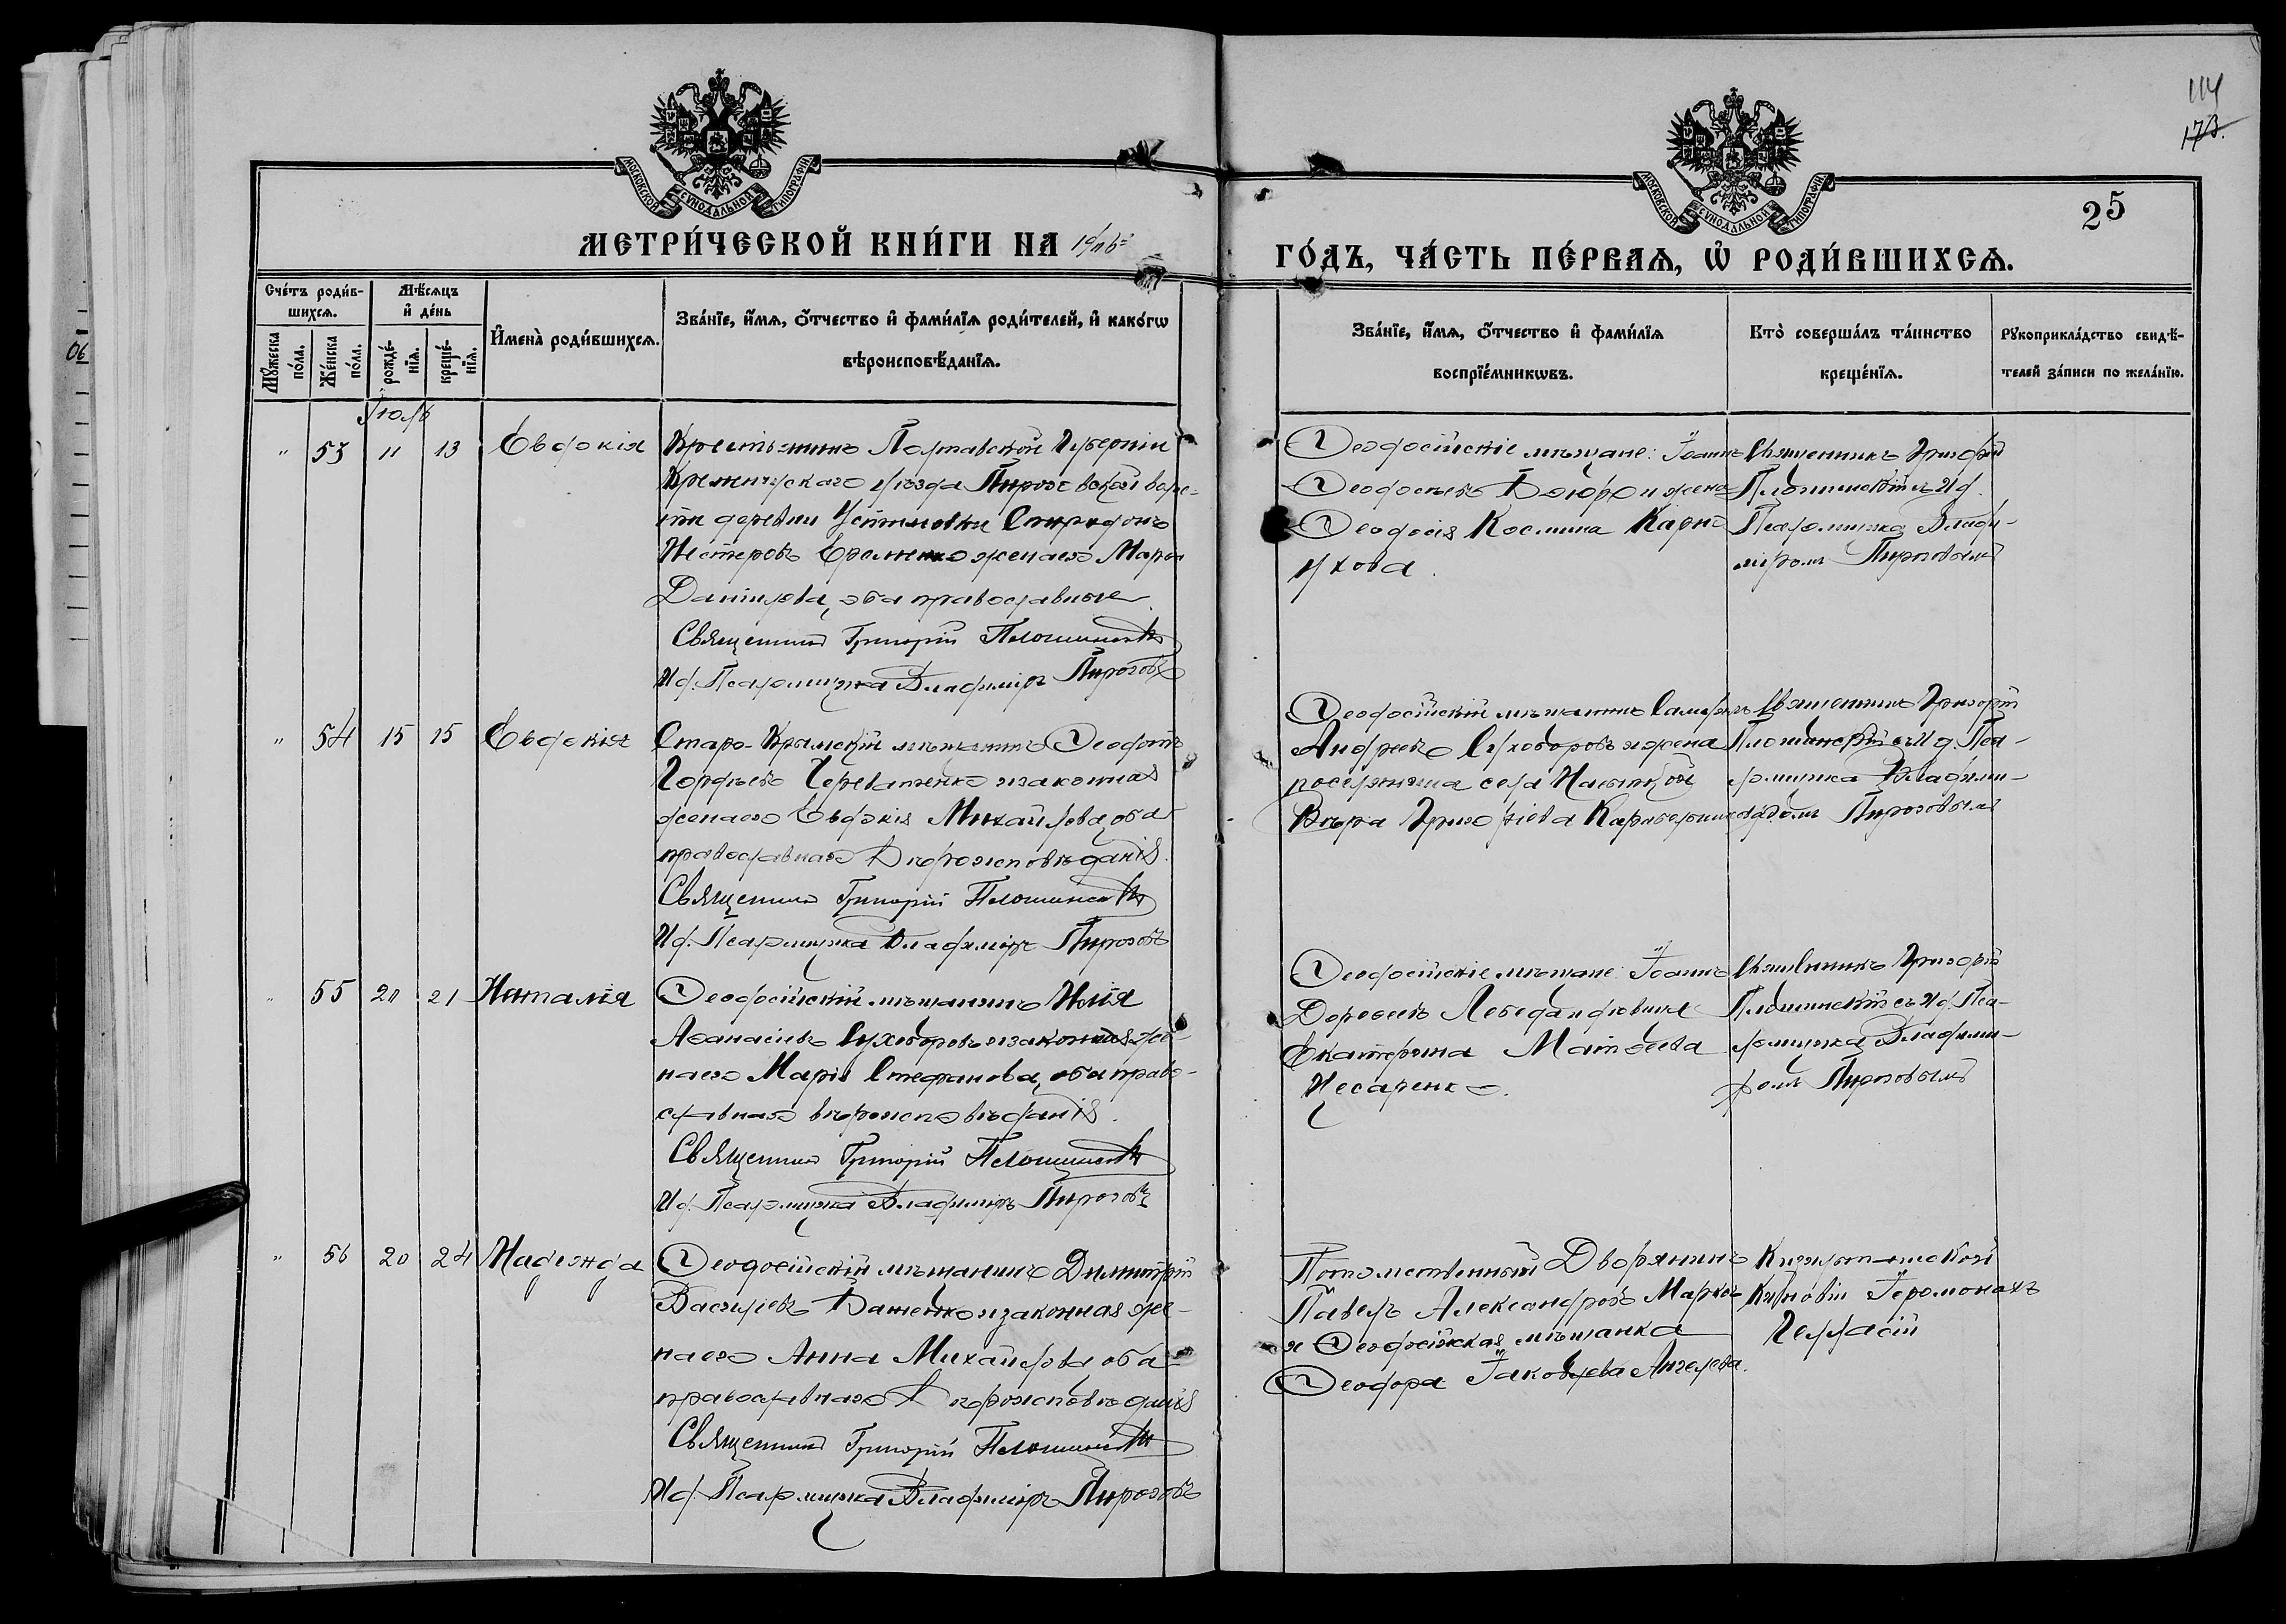 114
173.
25
МОСКОВСКОЙ СѴНОДАЛЬНОЙ ТИПОГРАФІИ
МОСКОВСКОЙ СѴНОДАЛЬНОЙ ТИПОГРАФІИ
МЕТРИ́ЧЕСКОЙ КНИ́ГИ НА
ГО́ДЪ, ЧА́СТЬ ПЕ́РВАѦ, Ѡ҆ РОДИ́ВШИХСѦ.
Сче́тъ роди́в-
шихсѧ.
Мꙋ́жеска по́ла.
Же́нска по́ла.
Мѣ́сѧцъ
и҆ де́нь
рожде́-нїѧ.
креще́-нїѧ.
И҆мена̀ роди́вшихсѧ.
Зва́нїе, и҆́мѧ, ѻ҆́тчество и҆ фами́лїѧ роди́телей, и҆ како́гѡ
вѣроисповѣ́данїѧ.
Зва́нїе, и҆́мѧ, ѻ҆́тчество и҆ фами́лїѧ
воспрїе́мникѡвъ.
Кто̀ соверша́лъ та́инство
креще́нїѧ.
Рꙋкоприкла́дство свидѣ́-
телей за́писи по жела́нїю.
Іюль
" 53 11 13 Евдокія
Крестьянинъ Полтавской Губерніи
Кременчугскаго уѣзда Пирог воло-
сти деревни Устиновки Спиридонъ
Нестеровъ Еременко жена его Марѳа
Даніилова, оба православные
Священникъ Григорій
И. д. Псаломщика Владиміръ Пироговъ
Ѳеодосійскіе мѣщане: Іоаннъ
Ѳеодосьевъ и жена
Ѳеодосія Косьмина Карна-
ухова.
Священникъ Григорій
съ И. д.
Псаломщика Влади-
міромъ Пироговымъ
" 54 15 15 Евдокія
Старо-Крымскій мѣщанинъ Ѳеодотъ
Гордѣевъ Череватенко и законная
жена его Евдокія Михайлова, оба
православнаго вѣроисповѣданія.
Священникъ Григорій
И. д. Псаломщика Владиміръ Пироговъ
Ѳеодосійскій мѣщанинъ
Андреевъ Суховоровъ и жена
поселянина села
Вѣра Григоріева
Священникъ Григорій
съ И. д. Пса-
ломщика Влади-
міромъ Пироговымъ
" 55 20 21 Наталія
Ѳеодосійскій мѣщанинъ Илія
Аѳанасіевъ Суховоровъ и законная же-
на его Марія Стефанова, оба право-
славнаго вѣроисповѣданія.
Священникъ Григорій
И. д. Псаломщика Владиміръ Пироговъ
Ѳеодосійскіе мѣщане: Іоаннъ
Дороѳеевъ
Екатерина Матѳеева
Чесаренко.
Священникъ Григорій
съ И. д. Пса-
ломщика Влади-
міромъ Пироговымъ
" 56 20 24 Надежда
Ѳеодосійскій мѣщанинъ Димитрій
Васильевъ и законная же-
на его Анна Михайлова оба
православнаго вѣроисповѣданія
Священникъ Григорій
И. д. Псаломщика Владиміръ Пироговъ
Потомственный Дворянинъ
Павелъ Александровъ
и Ѳеодосійская мѣщанка
Ѳеодора Іаковлева Ангелева.
Киновіи Іеромонахъ
Герасій